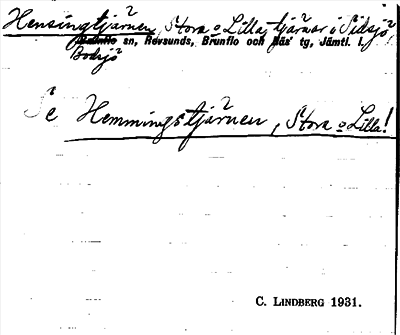 Hensingtjärnen, Stora o Lilla, tjärnar i Sidsjö,
Brunflo sn, Revsunds, Brunflo och Näs' tg, Jämtl. l.
Bodsjö
Se Hemmingstjärnen, Stora o Lilla!
C. LINDBERG 1931.